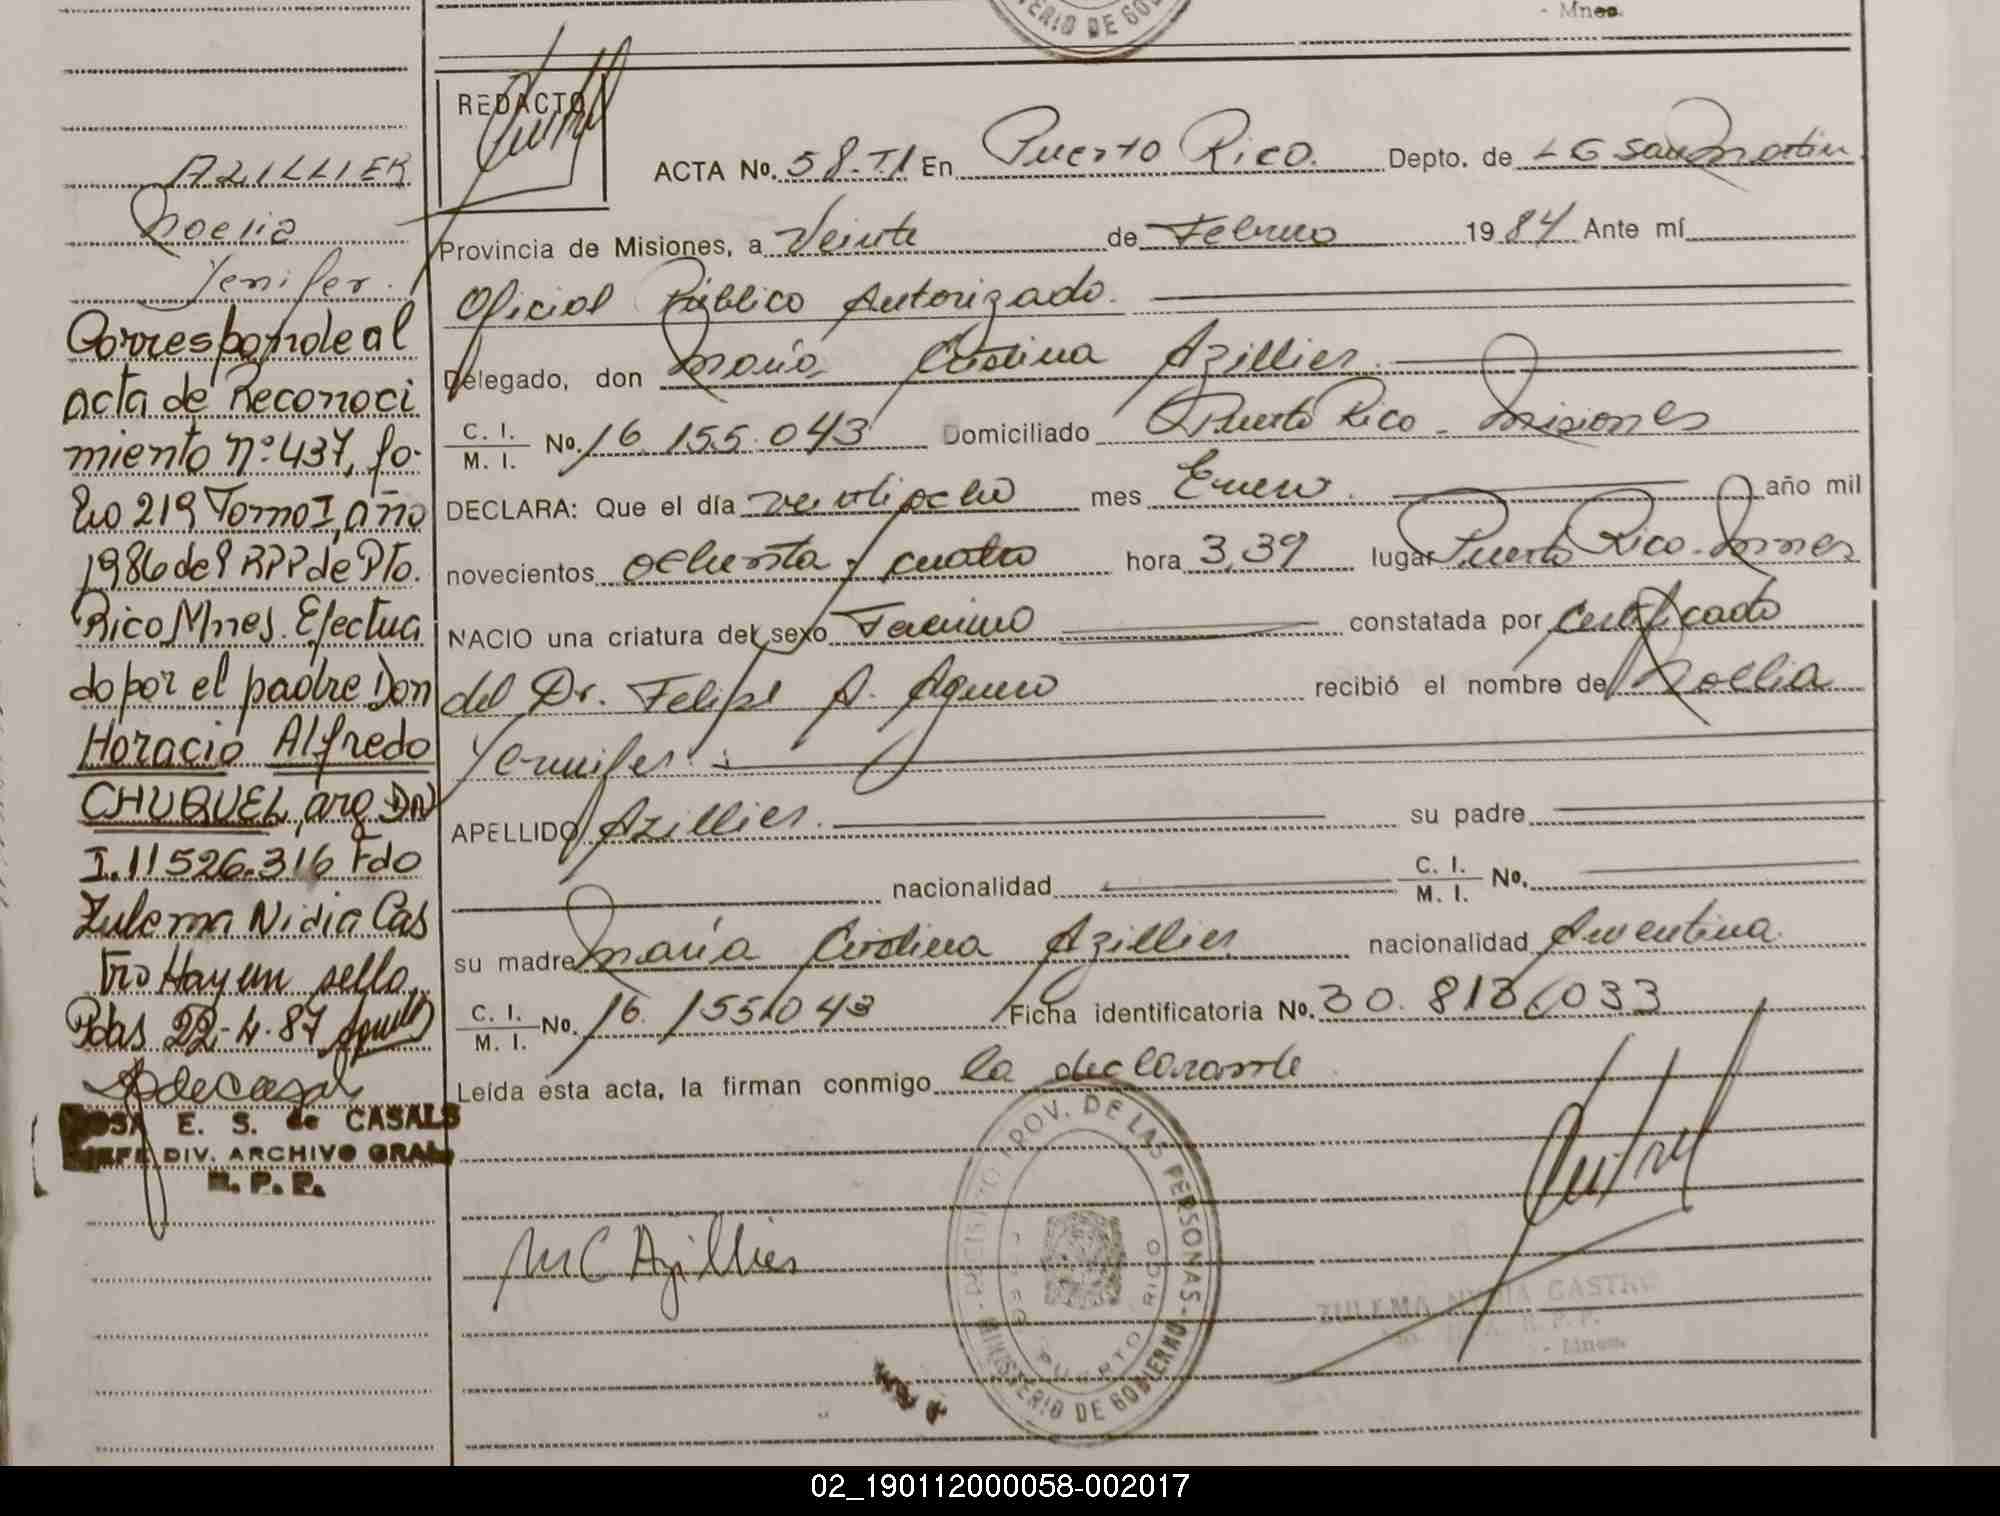 - Mnes.
MINISTERIO DE GOB
AZILLIER
Noelia
Yenifer.
Corresponde al
acta de Reconoci
miento Nº 437, fo-
lio 219 Tomo I, año
1986 del RPP de Pto.
Rico Mnes. Efectua
do por el padre Don
Horacio Alfredo
CHUQUEL, arg DN
I. 11526.316 Fdo
Zulema Nidia Cas
tro Hay un sello
Pdas 22-4-87
ROSA E. S. de CASALS
JEFE DIV. ARCHIVO GRAL.
R. P. P.
REDACTO
ACTA No. 58-TI En Puerto Rico. Depto. de LG San Martin
Provincia de Misiones, a Veinte de Febrero 1984 Ante mí
Oficial Público Autorizado.
Delegado, don María Cristina Azillier.
C. I. / M. I. No. 16.155.043 Domiciliado Puerto Rico - Misiones
DECLARA: Que el día veintiocho mes Enero. año mil
novecientos ochenta y cuatro hora 3,39 lugar Puerto Rico - Mnes
NACIO una criatura del sexo Femenino constatada por Certificado
del Dr. Felipe A. Aguero recibió el nombre de Noelia
Yennifer.
APELLIDO Azillier. su padre
nacionalidad C. I. / M. I. No.
su madre María Cristina Azillier nacionalidad Argentina
C. I. / M. I. No. 16.155.043 Ficha identificatoria No. 30.813.033
Leída esta acta, la firman conmigo la declarante
MC Azillier
REGISTRO PROV. DE LAS PERSONAS
MINISTERIO DE GOBIERNO
PUERTO RICO
ZULEMA NIDIA CASTRO
R. P. P.
- Mnes.
02_190112000058-002017